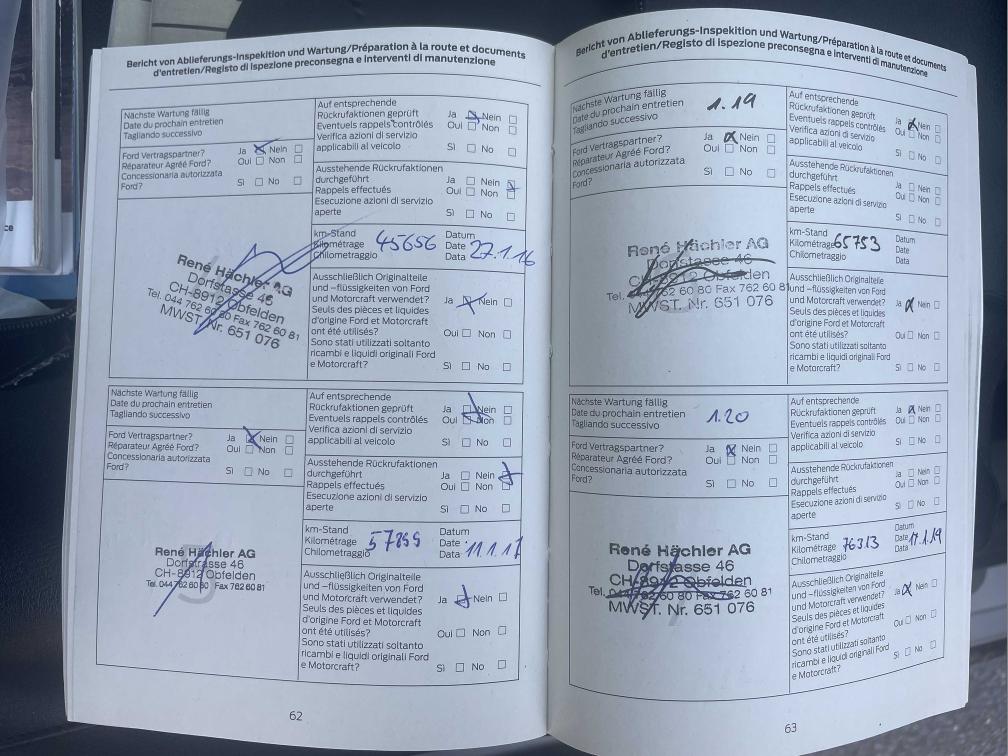 Bericht von Ablieferungs-Inspektion und Wartung/Préparation à la route et documents
d'entretien/Registo di ispezione preconsegna e interventi di manutenzione
Nächste Wartung fällig
Date du prochain entretien
Tagliando successivo
Ford Vertragspartner? Ja Nein
Réparateur Agréé Ford? Oui Non
Concessionaria autorizzata
Ford? Sì No
Auf entsprechende
Rückrufaktionen geprüft Ja Nein
Eventuels rappels contrôlés Oui Non
Verifica azioni di servizio
applicabili al veicolo Sì No
Ausstehende Rückrufaktionen
durchgeführt Ja Nein
Rappels effectués Oui Non
Esecuzione azioni di servizio
aperte Sì No
René Hächler AG
Dorfstasse 46
CH-8912 Obfelden
Tel. 044 762 60 80 Fax 762 60 81
MWST. Nr. 651 076
km-Stand Datum
Kilométrage 45656 Date 27.1.16
Chilometraggio Data
Ausschließlich Originalteile
und -flüssigkeiten von Ford
und Motorcraft verwendet? Ja Nein
Seuls des pièces et liquides
d'origine Ford et Motorcraft
ont été utilisés? Oui Non
Sono stati utilizzati soltanto
ricambi e liquidi originali Ford
e Motorcraft? Sì No
Nächste Wartung fällig
Date du prochain entretien
Tagliando successivo
Ford Vertragspartner? Ja Nein
Réparateur Agréé Ford? Oui Non
Concessionaria autorizzata
Ford? Sì No
Auf entsprechende
Rückrufaktionen geprüft Ja Nein
Eventuels rappels contrôlés Oui Non
Verifica azioni di servizio
applicabili al veicolo Sì No
Ausstehende Rückrufaktionen
durchgeführt Ja Nein
Rappels effectués Oui Non
Esecuzione azioni di servizio
aperte Sì No
René Hächler AG
Dorfstrasse 46
CH-8912 Obfelden
Tel. 044 762 60 80 Fax 762 60 81
km-Stand Datum
Kilométrage Date
Chilometraggio Data 11.1.17
Ausschließlich Originalteile
und -flüssigkeiten von Ford
und Motorcraft verwendet? Ja Nein
Seuls des pièces et liquides
d'origine Ford et Motorcraft
ont été utilisés? Oui Non
Sono stati utilizzati soltanto
ricambi e liquidi originali Ford
e Motorcraft? Sì No
62
Bericht von Ablieferungs-Inspektion und Wartung/Préparation à la route et documents
d'entretien/Registo di ispezione preconsegna e interventi di manutenzione
Nächste Wartung fällig
Date du prochain entretien 1.19
Tagliando successivo
Ford Vertragspartner? Ja Nein
Réparateur Agréé Ford? Oui Non
Concessionaria autorizzata
Ford? Sì No
Auf entsprechende
Rückrufaktionen geprüft Ja Nein
Eventuels rappels contrôlés Oui Non
Verifica azioni di servizio
applicabili al veicolo Sì No
Ausstehende Rückrufaktionen
durchgeführt Ja Nein
Rappels effectués Oui Non
Esecuzione azioni di servizio
aperte Sì No
René Hächler AG
Dorfstasse 46
CH-8912 Obfelden
Tel. 044 762 60 80 Fax 762 60 81
MWST. Nr. 651 076
km-Stand Datum
Kilométrage 65753 Date
Chilometraggio Data
Ausschließlich Originalteile
und -flüssigkeiten von Ford
und Motorcraft verwendet? Ja Nein
Seuls des pièces et liquides
d'origine Ford et Motorcraft
ont été utilisés? Oui Non
Sono stati utilizzati soltanto
ricambi e liquidi originali Ford
e Motorcraft? Sì No
Nächste Wartung fällig
Date du prochain entretien 1.20
Tagliando successivo
Ford Vertragspartner? Ja Nein
Réparateur Agréé Ford? Oui Non
Concessionaria autorizzata
Ford? Sì No
Auf entsprechende
Rückrufaktionen geprüft Ja Nein
Eventuels rappels contrôlés Oui Non
Verifica azioni di servizio
applicabili al veicolo Sì No
Ausstehende Rückrufaktionen
durchgeführt Ja Nein
Rappels effectués Oui Non
Esecuzione azioni di servizio
aperte Sì No
René Hächler AG
Dorfstasse 46
CH-8912 Obfelden
Tel. 044 762 60 80 Fax 762 60 81
MWST. Nr. 651 076
km-Stand Datum
Kilométrage 76313 Date 17.1.19
Chilometraggio Data
Ausschließlich Originalteile
und -flüssigkeiten von Ford
und Motorcraft verwendet? Ja Nein
Seuls des pièces et liquides
d'origine Ford et Motorcraft
ont été utilisés? Oui Non
Sono stati utilizzati soltanto
ricambi e liquidi originali Ford
e Motorcraft? Sì No
63